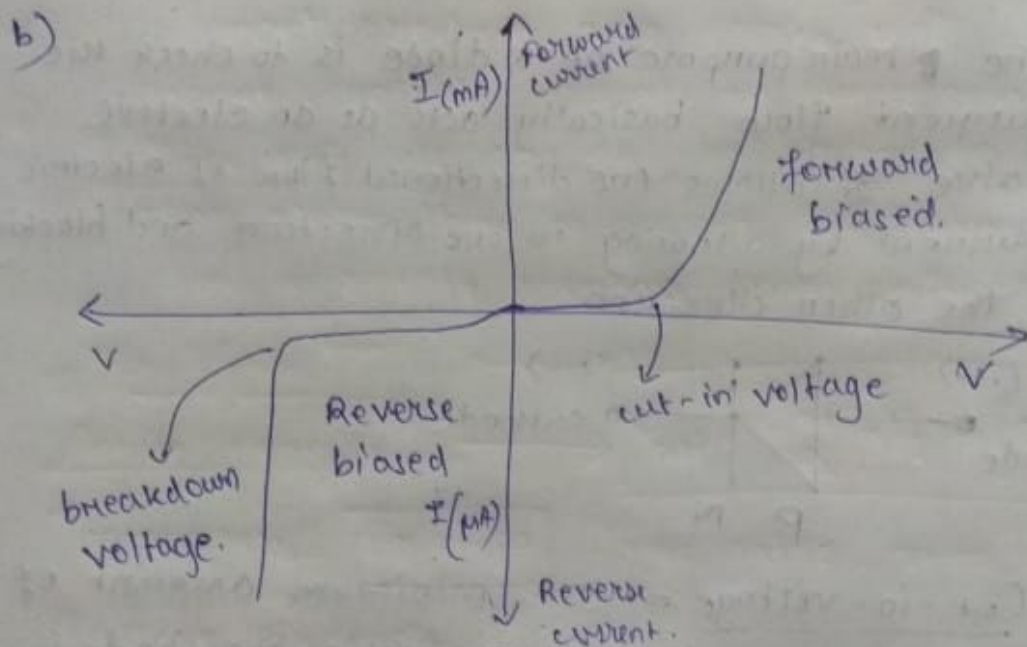 b)
Forward
current
I (mA)
forward
biased.
V
V
cut-in voltage
Reverse
biased
breakdown
voltage.
I (μA)
Reverse
current.